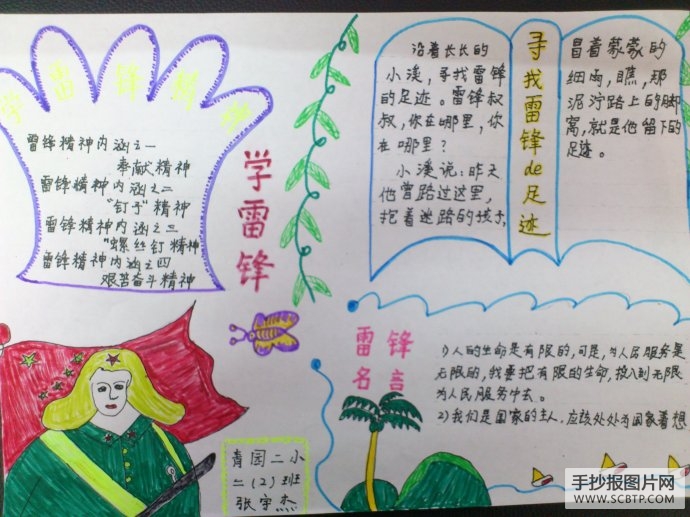 学雷锋精神
雷锋精神内涵之一
奉献精神
雷锋精神内涵之二
"钉子"精神
雷锋精神内涵之三
"螺丝钉精神
雷锋精神内涵之四
艰苦奋斗精神
学雷锋
沿着长长的
小溪，寻找雷锋
的足迹。雷锋叔
叔，你在哪里，你
在哪里？
小溪说：昨天
他曾路过这里，
抱着迷路的孩子，
寻找雷锋de足迹
冒着蒙蒙的
细雨，瞧，那
泥泞路上的脚
窝，就是他留下的
足迹。
雷锋
名言
1)人的生命是有限的，可是，为人民服务是
无限的，我要把有限的生命，投入到无限
为人民服务中去。
2)我们是国家的主人，应该处处为国家着想
青园二小
二(2)班
张宇杰
手抄报图片网
WWW.SCBTP.COM